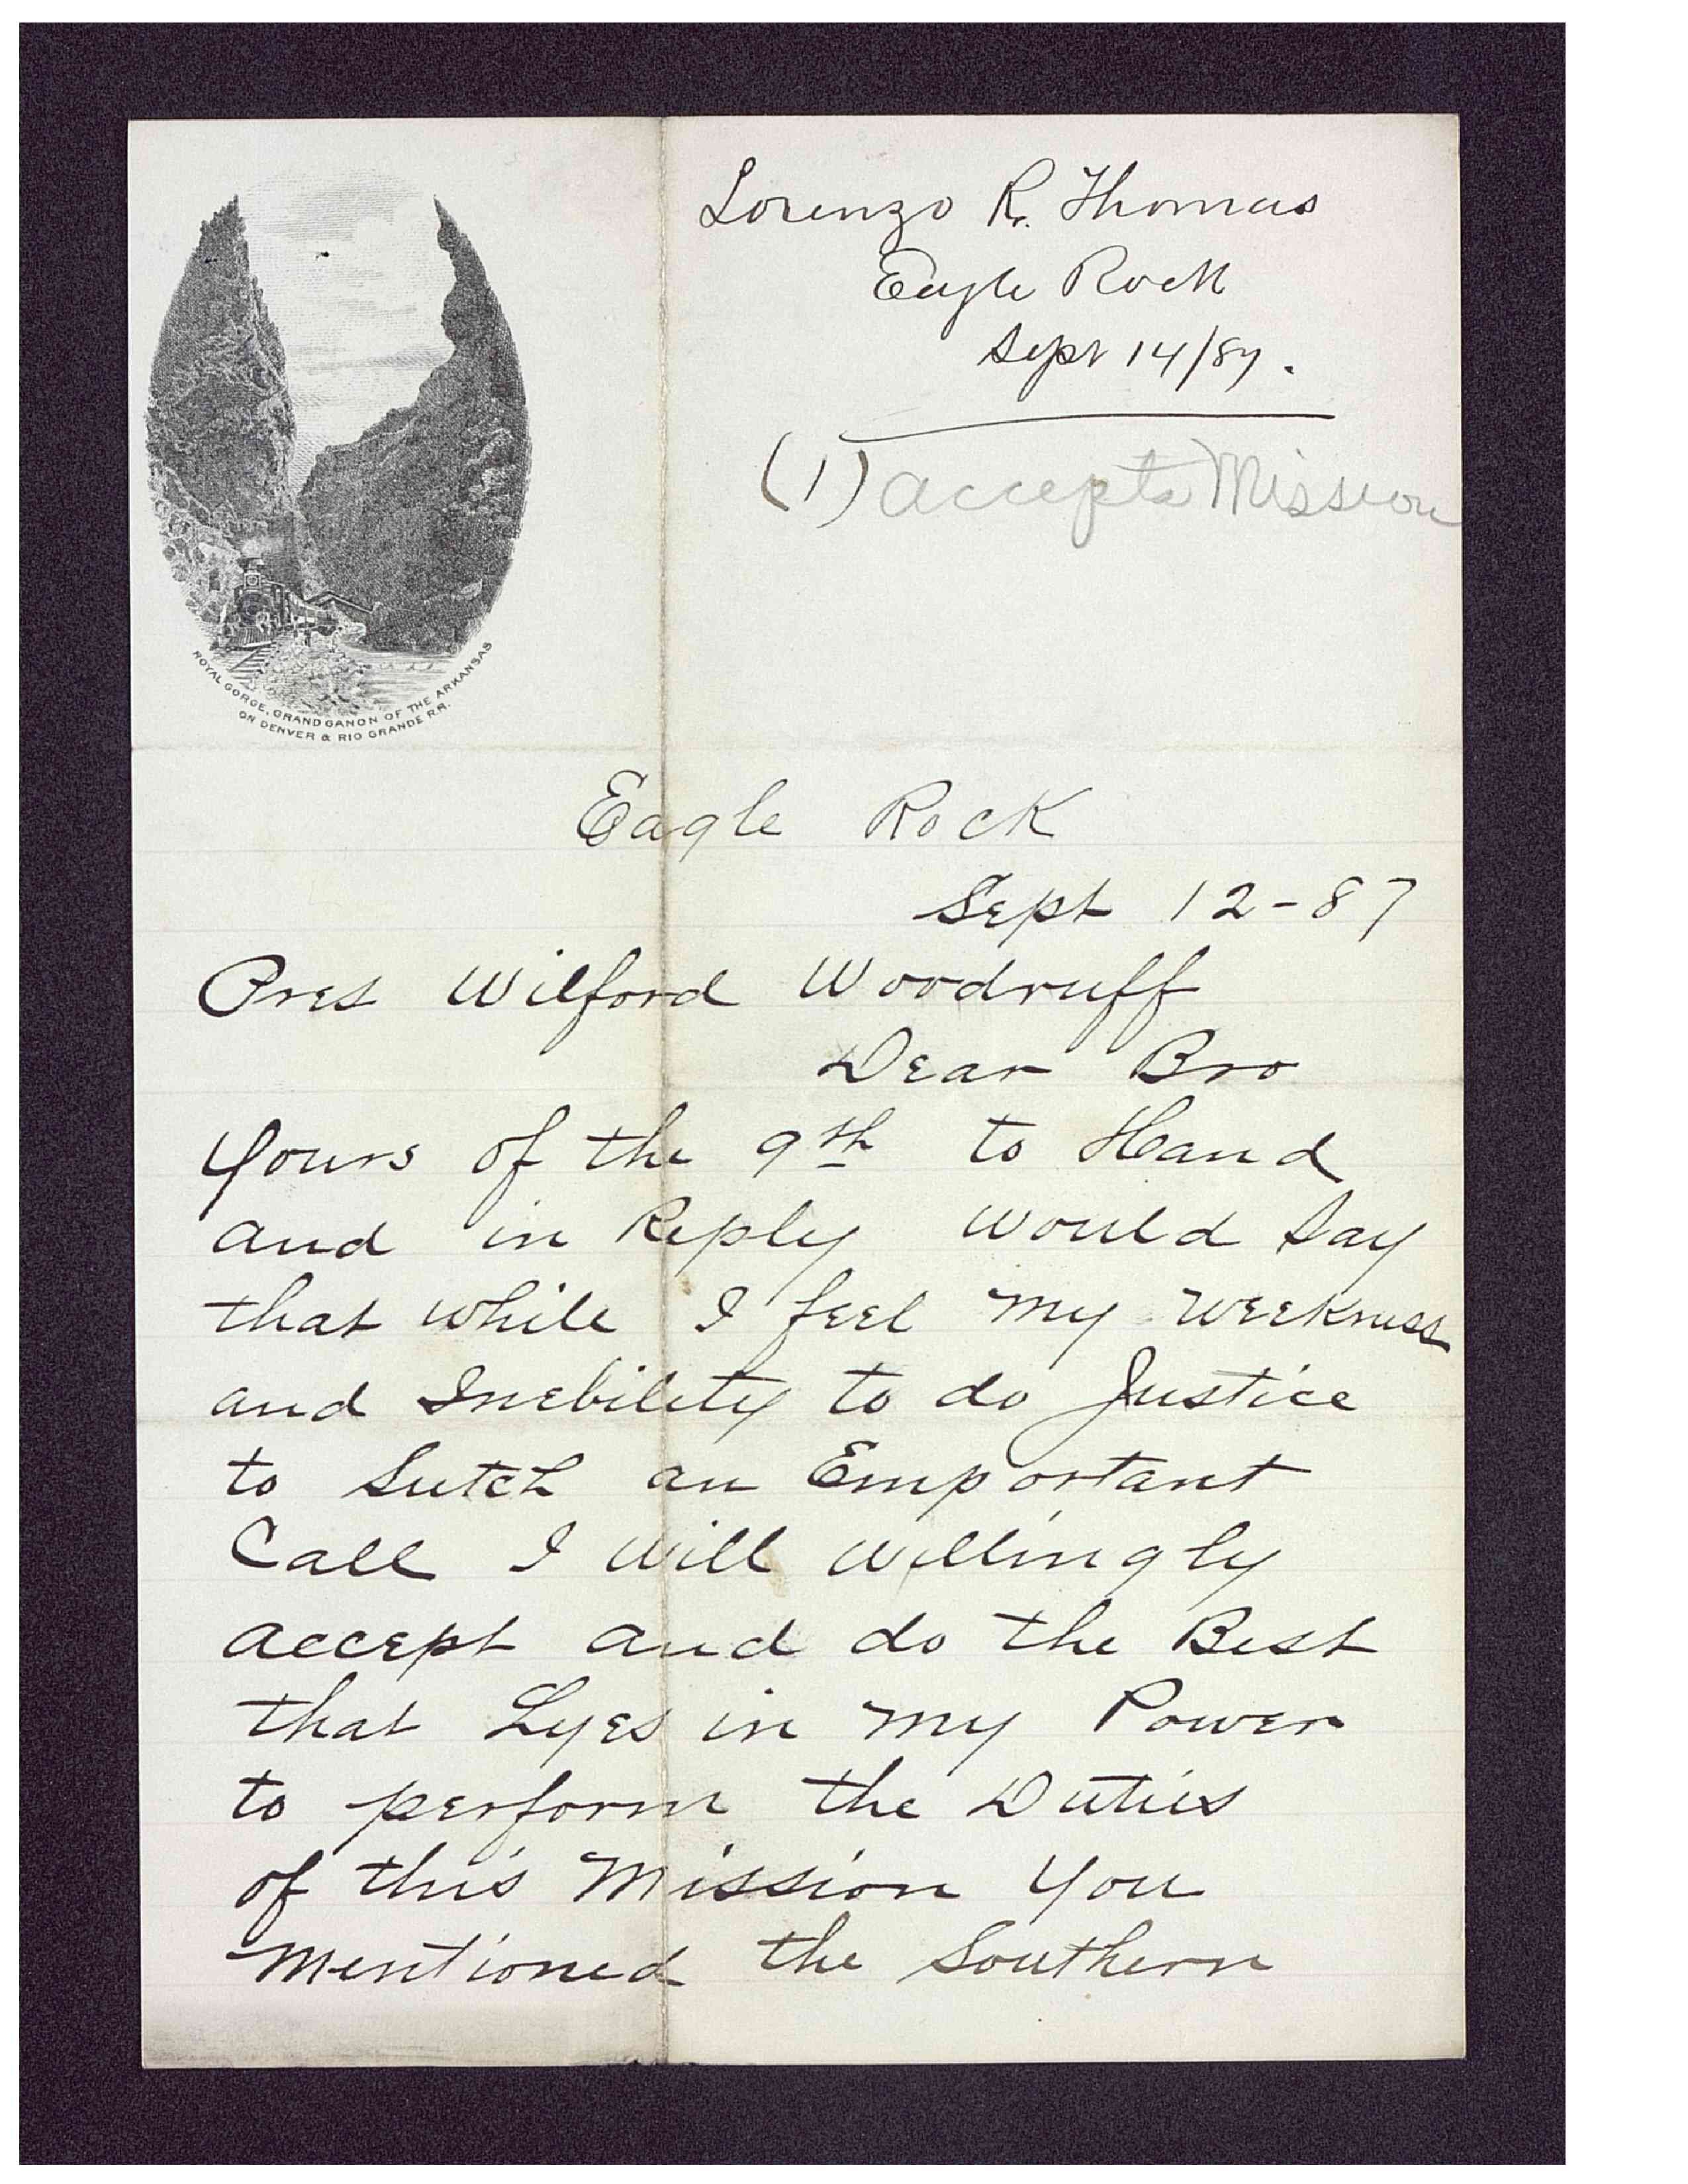 Lorenzo R. Thomas
Eagle Rock
Sept 14/87.
(1) accepts Mission
ROYAL GORGE, GRAND CANON OF THE ARKANSAS
ON DENVER & RIO GRANDE R.R.
Eagle Rock
Sept 12-87
Pres Wilford Woodruff
Dear Bro
Yours of the 9th to Hand
and in Reply would say
that while I feel my weekness
and Inebility to do Justice
to Sutch an Emportant
Call I will willingly
accept and do the Best
that Lyes in my Power
to perform the Duties
of this Mission You
mentioned the Southern